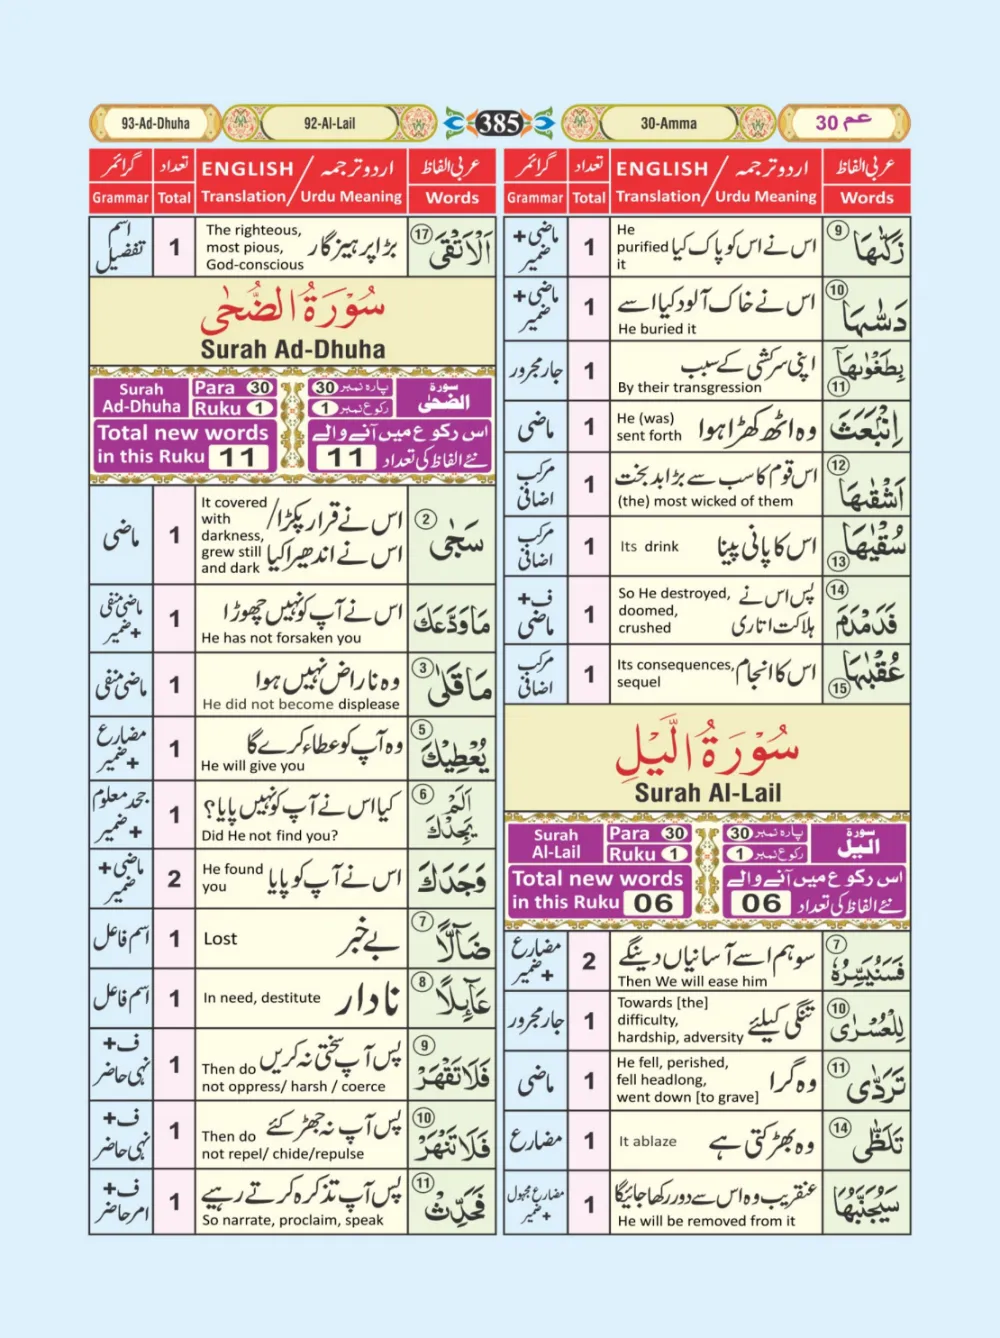 93-Ad-Dhuha
92-Al-Lail
385
30-Amma
عم 30
عربی الفاظ اردو ترجمہ / ENGLISH تعداد گرائمر
Words Urdu Meaning / Translation Total Grammar
⑨ زَكّٰىهَا
اس نے اس کو پاک کیا
He
purified
it
1
ماضی +
ضمیر
⑩ دَسّٰىهَا
اس نے خاک آلود کیا اسے
He buried it
1
ماضی +
ضمیر
بِطَغْوٰىهَاۤ ⑪
اپنی سرکشی کے سبب
By their transgression
1
جار مجرور
اِنْۢبَعَثَ
وہ اٹھ کھڑا ہوا
He (was)
sent forth
1
ماضی
⑫ اَشْقٰىهَا
اس قوم کا سب سے بڑا بد بخت
(the) most wicked of them
1
مرکب
اضافی
سُقْيٰهَا ⑬
اس کا پانی پینا
Its drink
1
مرکب
اضافی
⑭ فَدَمْدَمَ
پس اس نے
ہلاکت اتاری
So He destroyed,
doomed,
crushed
1
ف +
ماضی
عُقْبٰهَا ⑮
اس کا انجام
Its consequences,
sequel
1
مرکب
اضافی
سُوْرَةُ الَّيْلِ
Surah Al-Lail
Surah
Al-Lail
Para 30
Ruku 1
پارہ نمبر 30
رکوع نمبر 1
سورة
الیل
Total new words
in this Ruku 06
اس رکوع میں آنے والے
نئے الفاظ کی تعداد 06
⑦ فَسَنُيَسِّرُهٗ
سو ہم اسے آسانیاں دینگے
Then We will ease him
2
مضارع
+ ضمیر
⑩ لِلْعُسْرٰى
تنگی کیلئے
Towards [the]
difficulty,
hardship, adversity
1
جار مجرور
⑪ تَرَدّٰى
وہ گرا
He fell, perished,
fell headlong,
went down [to grave]
1
ماضی
⑭ تَلَظّٰى
وہ بھڑکتی ہے
It ablaze
1
مضارع
سَيُجَنَّبُهَا
عنقریب وہ اس سے دور رکھا جائیگا
He will be removed from it
1
مضارع مجہول
+ ضمیر
عربی الفاظ اردو ترجمہ / ENGLISH تعداد گرائمر
Words Urdu Meaning / Translation Total Grammar
⑰ اَلْاَتْقَى
بڑا پرہیز گار
The righteous,
most pious,
God-conscious
1
اسم
تفضیل
سُوْرَةُ الضُّحٰى
Surah Ad-Dhuha
Surah
Ad-Dhuha
Para 30
Ruku 1
پارہ نمبر 30
رکوع نمبر 1
سورة
الضحٰی
Total new words
in this Ruku 11
اس رکوع میں آنے والے
نئے الفاظ کی تعداد 11
② سَجٰى
اس نے قرار پکڑا /
اس نے اندھیرا کیا
It covered
with
darkness,
grew still
and dark
1
ماضی
مَا وَدَّعَكَ
اس نے آپ کو نہیں چھوڑا
He has not forsaken you
1
ماضی منفی
+ ضمیر
③ مَا قَلٰى
وہ ناراض نہیں ہوا
He did not become displease
1
ماضی منفی
⑤ يُعْطِيْكَ
وہ آپ کو عطاء کرے گا
He will give you
1
مضارع
+ ضمیر
⑥ اَلَمْ
يَجِدْكَ
کیا اس نے آپ کو نہیں پایا؟
Did He not find you?
1
جحد معلوم
+ ضمیر
وَجَدَكَ
اس نے آپ کو پایا
He found
you
2
ماضی +
ضمیر
⑦ ضَآلًّا
بے خبر
Lost
1
اسم فاعل
⑧ عَآئِلًا
نادار
In need, destitute
1
اسم فاعل
⑨ فَلَا تَقْهَرْ
پس آپ سختی نہ کریں
Then do
not oppress/ harsh / coerce
1
ف +
نہی حاضر
⑩ فَلَا تَنْهَرْ
پس آپ نہ جھڑکئے
Then do
not repel/ chide/repulse
1
ف +
نہی حاضر
⑪ فَحَدِّثْ
پس آپ تذکرہ کرتے رہیے
So narrate, proclaim, speak
1
ف +
امر حاضر